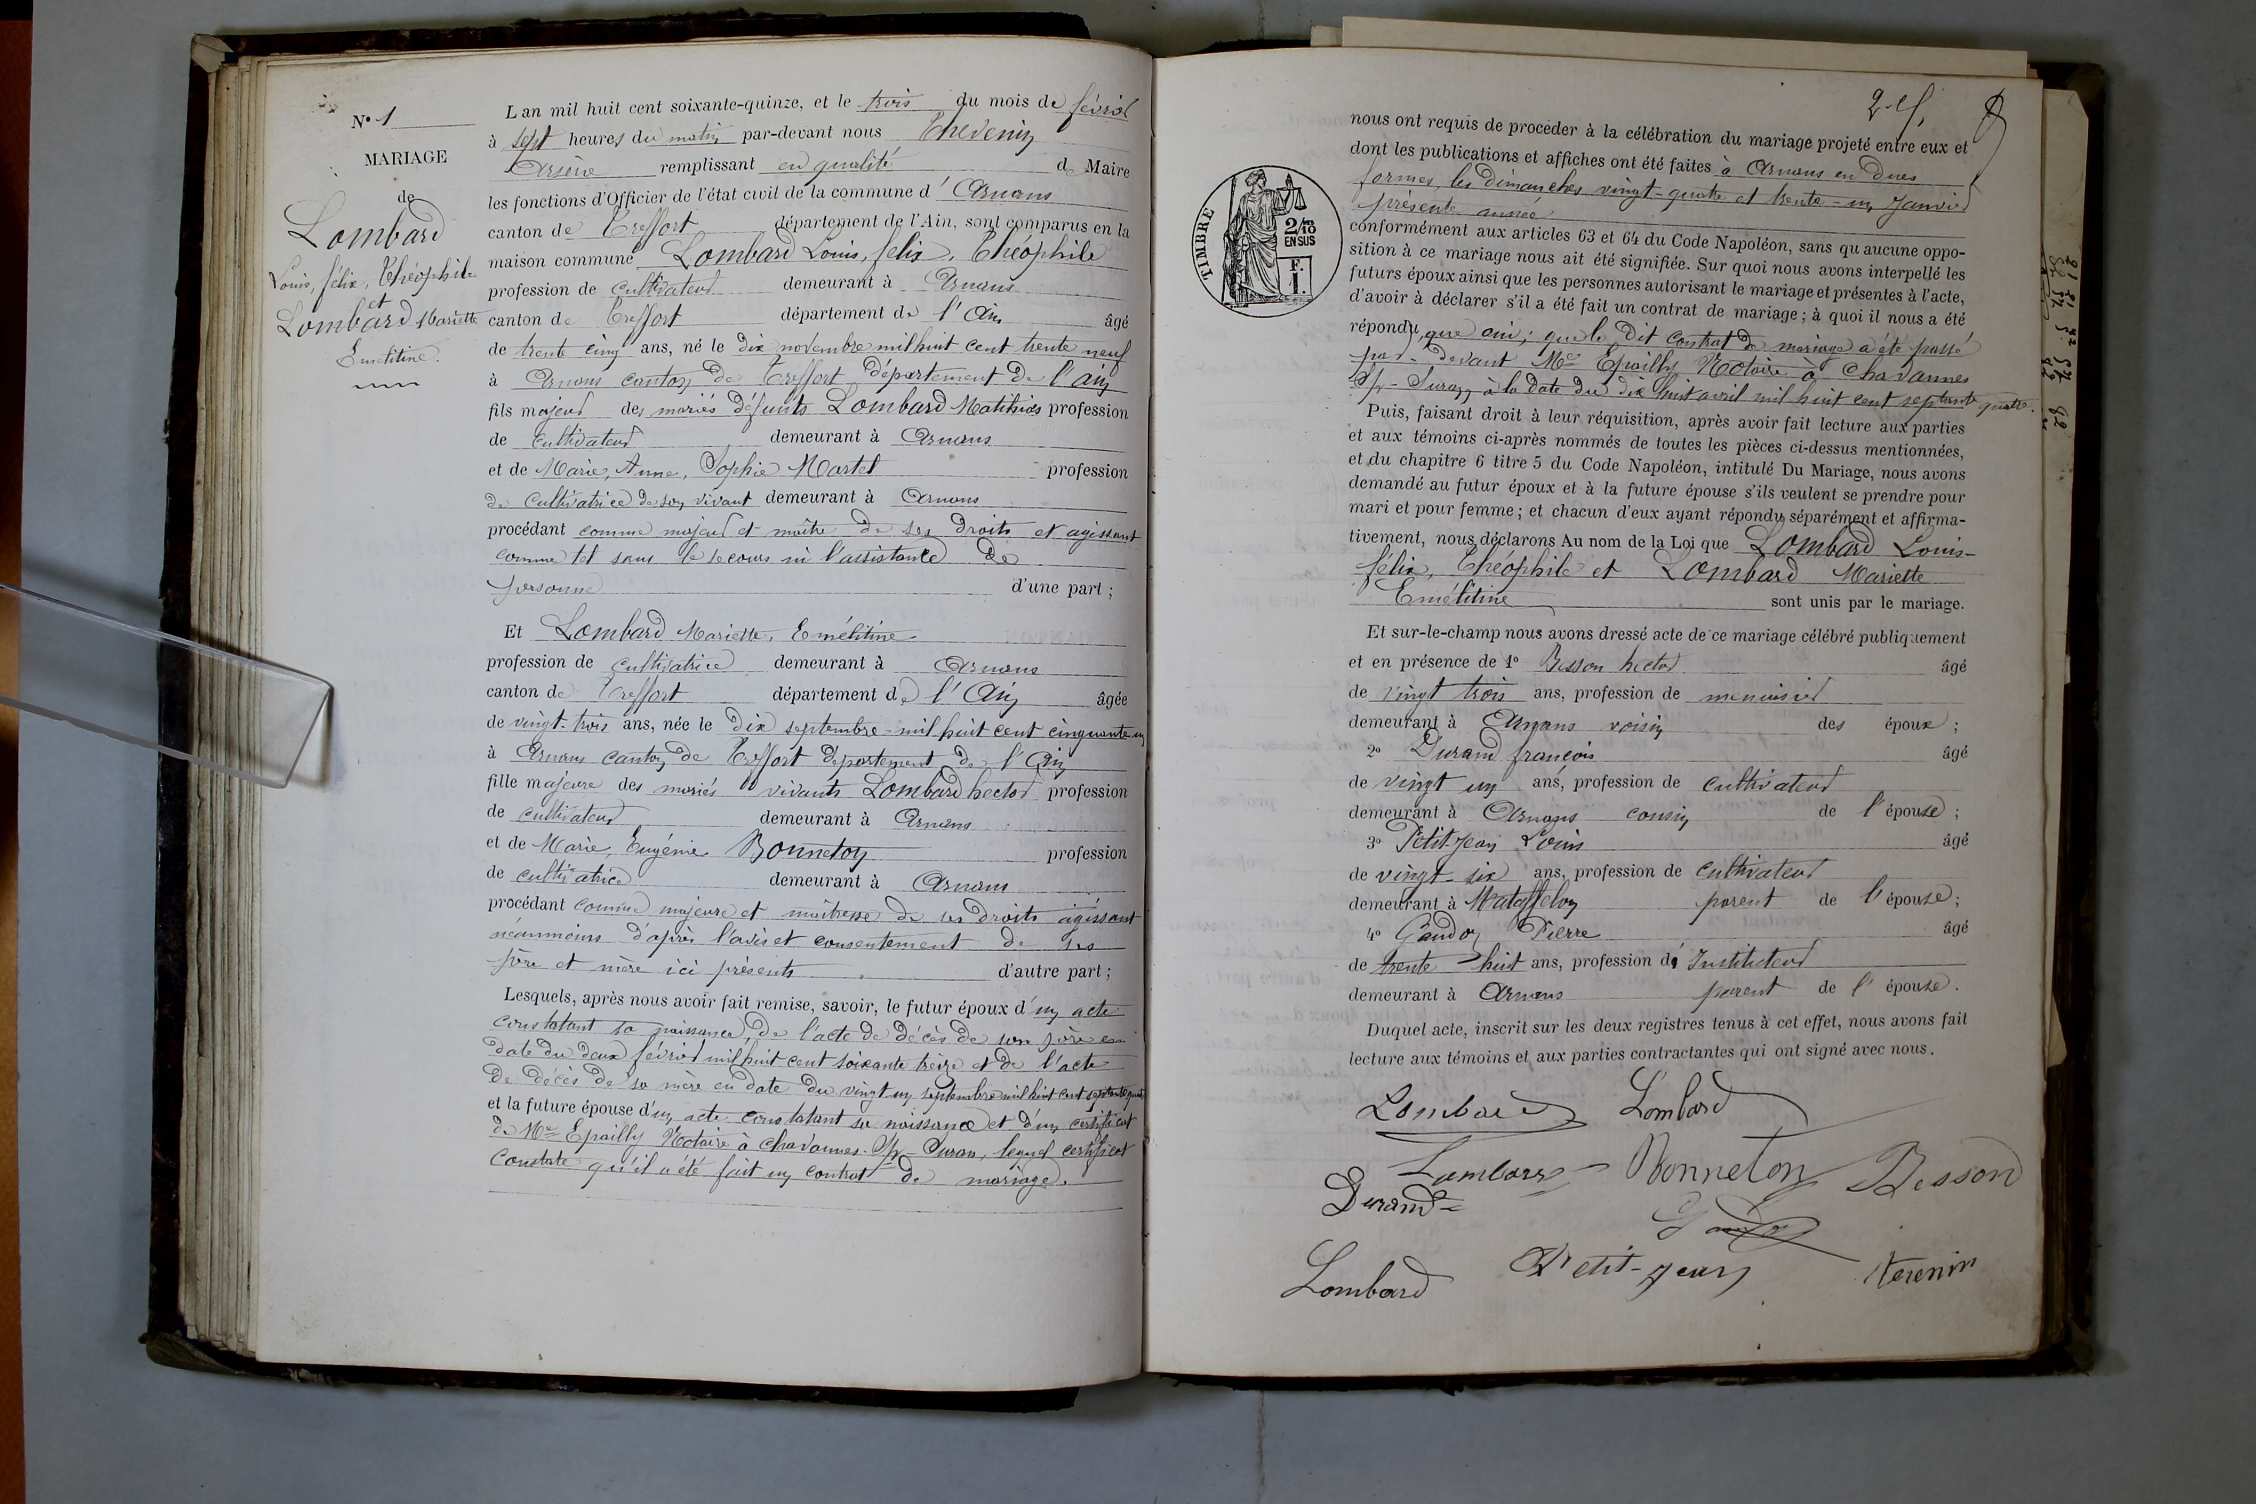 N° 1
MARIAGE
de
Lombard
Louis, félix, Théophile
et
Lombard Mariette
Emélitine.
L'an mil huit cent soixante-quinze, et le trois du mois de février
à sept heures du matin par-devant nous Thevenin
Arsène remplissant en qualité de Maire
les fonctions d'Officier de l'état civil de la commune d' Arnans
canton de Treffort département de l'Ain, sont comparus en la
maison commune Lombard Louis, félix, Théophile
profession de cultivateur demeurant à Arnans
canton de Treffort département de l'Ain âgé
de trente cinq ans, né le dix novembre mil huit cent trente neuf
à Arnans canton de Treffort département de l'ain
fils majeur des mariés défunts Lombard Matthias profession
de cultivateur demeurant à Arnans
et de Marie, Anne, Sophie Martel profession
de cultivatrice de son vivant demeurant à Arnans
procédant comme majeur et maître de ses droits et agissant
comme tel sans le secours ni l'assistance de
personne d'une part ;
Et Lombard Mariette, Emélitine
profession de cultivatrice demeurant à Arnans
canton de Treffort département de l'Ain âgée
de vingt-trois ans, née le dix septembre mil huit cent cinquante un
à Arnans canton de Treffort département de l'Ain
fille majeure des mariés vivants Lombard hector profession
de cultivateur demeurant à Arnans
et de Marie, Eugénie Bonneton profession
de cultivatrice demeurant à Arnans
procédant comme majeure et maîtresse de ses droits agissant
néanmoins d'après l'avis et consentement de ses
père et mère ici présents d'autre part ;
Lesquels, après nous avoir fait remise, savoir, le futur époux d'un acte
constatant sa naissance, de l'acte de décès de son père en
date du deux février mil huit cent soixante treize et de l'acte
de décès de sa mère en date du vingt un septembre mil huit cent septante quatre
et la future épouse d'un acte constatant sa naissance et d'un certificat
de Me Epailly Notaire à Chavannes-S/r-Suran, lequel certificat
constate qu'il a été fait un contrat de mariage.
TIMBRE
2/10
EN SUS
F.
1.
nous ont requis de procéder à la célébration du mariage projeté entre eux et
dont les publications et affiches ont été faites à Arnans en dues
formes, les dimanches vingt-quatre et trente-un Janvier
présente année
conformément aux articles 63 et 64 du Code Napoléon, sans qu'aucune oppo-
sition à ce mariage nous ait été signifiée. Sur quoi nous avons interpellé les
futurs époux ainsi que les personnes autorisant le mariage et présentes à l'acte,
d'avoir à déclarer s'il a été fait un contrat de mariage ; à quoi il nous a été
répondu que oui ; que le dit contrat de mariage a été passé
par-devant Me Epailly Notaire à Chavannes
S/r-Suran à la date du dix huit avril mil huit cent septante quatre.
Puis, faisant droit à leur réquisition, après avoir fait lecture aux parties
et aux témoins ci-après nommés de toutes les pièces ci-dessus mentionnées,
et du chapitre 6 titre 5 du Code Napoléon, intitulé Du Mariage, nous avons
demandé au futur époux et à la future épouse s'ils veulent se prendre pour
mari et pour femme ; et chacun d'eux ayant répondu séparément et affirma-
tivement, nous déclarons Au nom de la Loi que Lombard Louis-
félix, Théophile et Lombard Mariette
Emélitine sont unis par le mariage.
Et sur-le-champ nous avons dressé acte de ce mariage célébré publiquement
et en présence de 1° Besson hector âgé
de vingt trois ans, profession de menuisier
demeurant à Arnans voisin des époux ;
2° Durand françois âgé
de vingt un ans, profession de cultivateur
demeurant à Arnans cousin de l'épouse ;
3° Petitjean Louis âgé
de vingt-six ans, profession de cultivateur
demeurant à Mataffelon parent de l'épouse ;
4° Gaudon Pierre âgé
de trente huit ans, profession d' Instituteur
demeurant à Arnans parent de l'épouse.
Duquel acte, inscrit sur les deux registres tenus à cet effet, nous avons fait
lecture aux témoins et aux parties contractantes qui ont signé avec nous.
Lombard Lombard
Lombard Bonneton Besson
Durand
Lombard Petit-jean